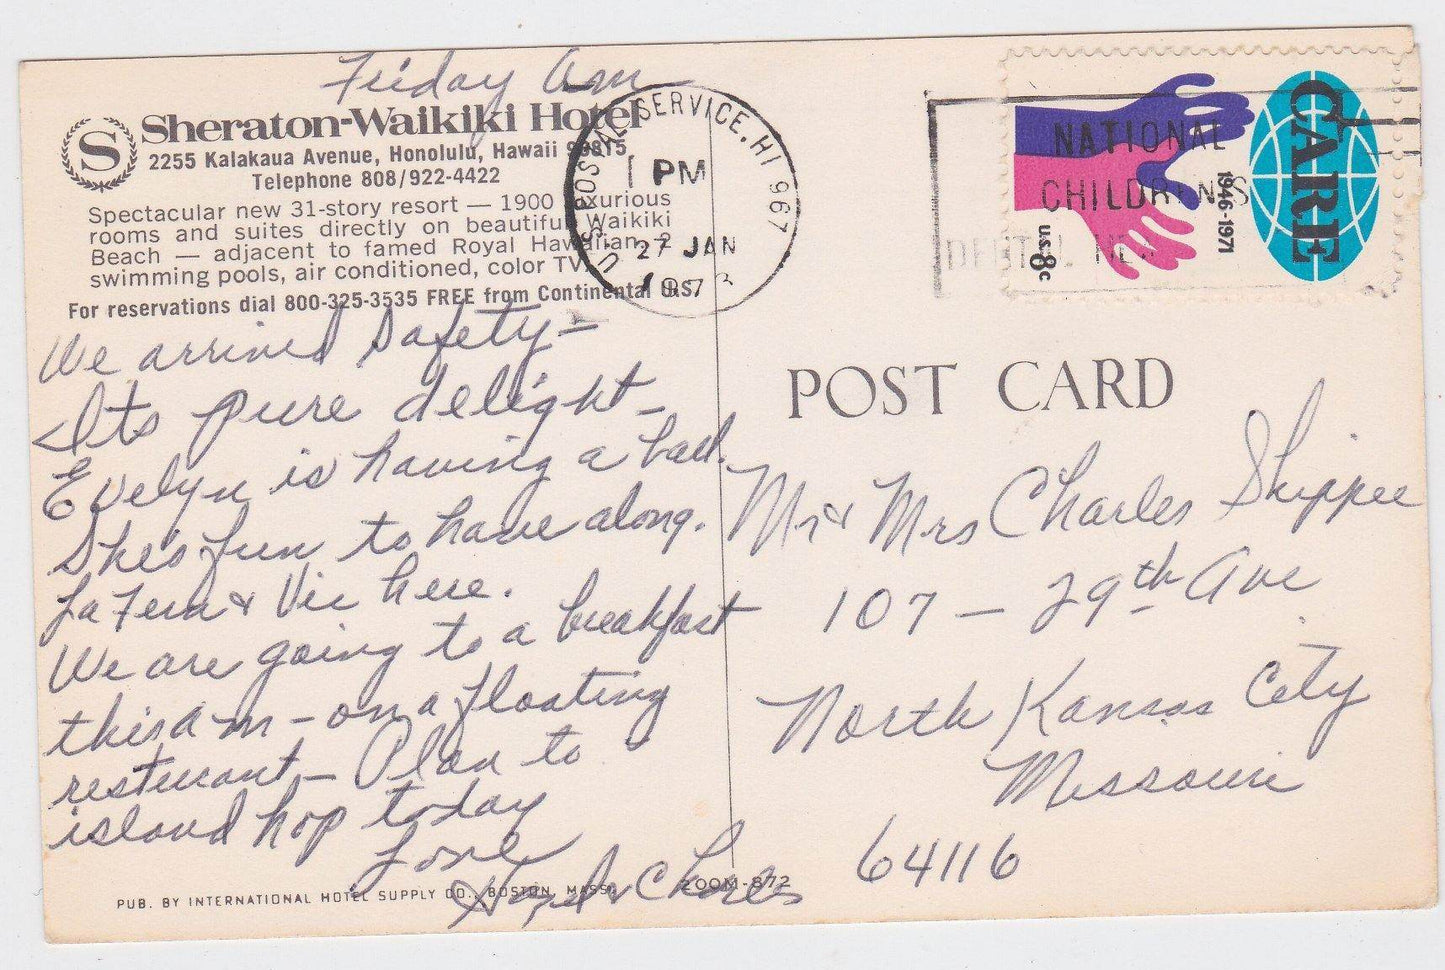 Friday am
S
Sheraton-Waikiki Hotel
2255 Kalakaua Avenue, Honolulu, Hawaii 96815
Telephone 808/922-4422
Spectacular new 31-story resort — 1900 luxurious
rooms and suites directly on beautiful Waikiki
Beach — adjacent to famed Royal Hawaiian. 2
swimming pools, air conditioned, color TV.
For reservations dial 800-325-3535 FREE from Continental U.S.
We arrived Safety –
Its pure delight –
Evelyn is having a ball.
She's fun to have along.
LaFern & Vic here.
We are going to a breakfast
this am – on a floating
resturant – Plan to
island hop today
Love
Hazel & Charles
PUB. BY INTERNATIONAL HOTEL SUPPLY CO., BOSTON, MASS.
ZOOM-872
U.S. POSTAL SERVICE, HI 967
PM
27 JAN
197
NATIONAL
CHILDREN'S
DENTAL
CARE
1946-1971
U.S. 8c
POST CARD
Mr & Mrs Charles Skippee
107 – 29th Ave
North Kansas City
Missouri
64116